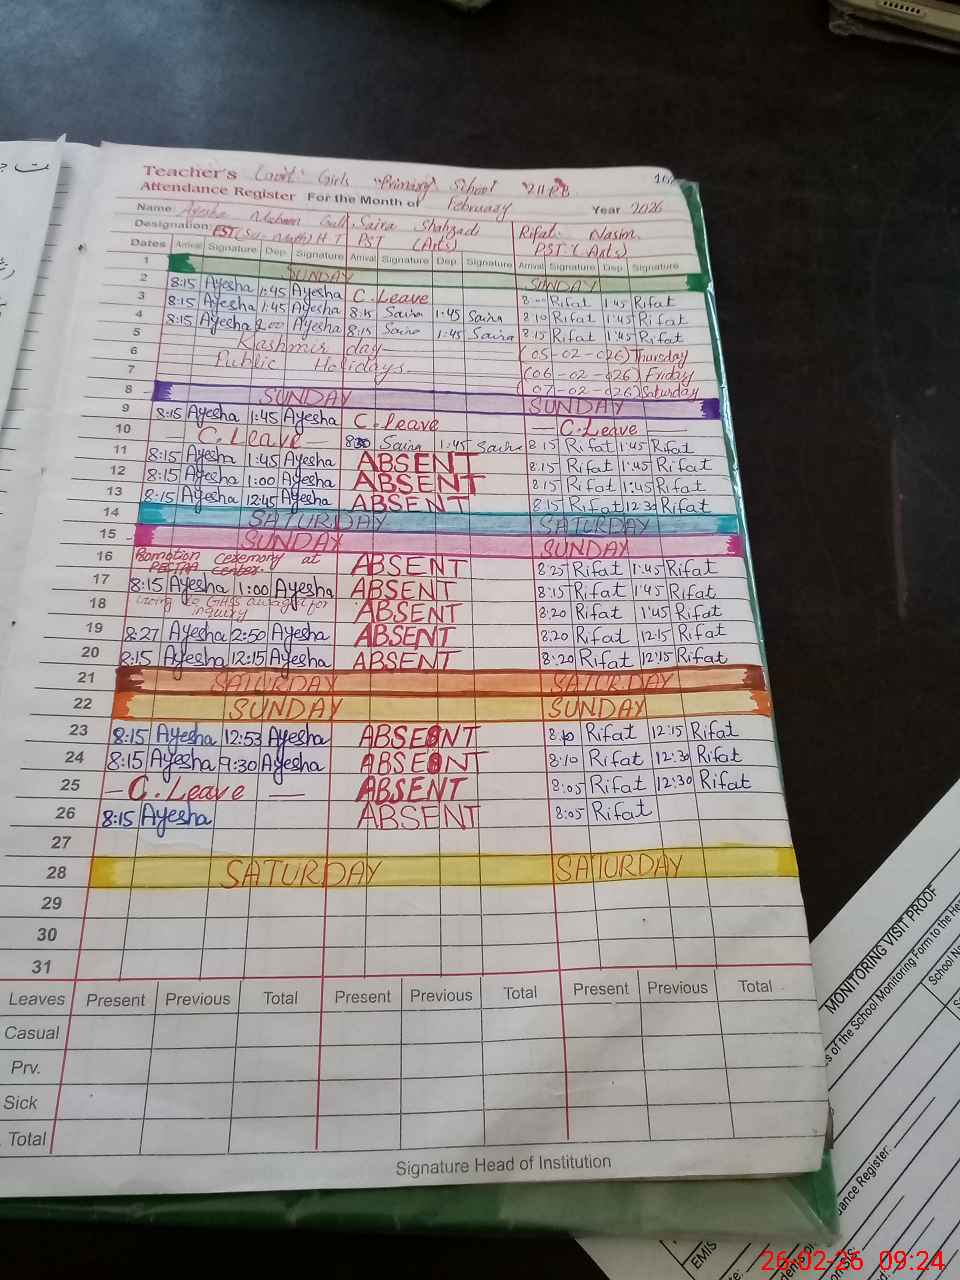 Teacher's Govt. Girls "Primary" School 211 R.B.
Attendance Register For the Month of February Year 2026
Name: Ayesha Gull, Saira Shahzadi Rifat Nasim
Designation: PST (Sci-math) H.T PST (Arts) PST (Arts)
Dates Arrival Signature Dep. Signature Arrival Signature Dep. Signature Arrival Signature Dep. Signature
1 SUNDAY SUNDAY
2 8:15 Ayesha 1:45 Ayesha C.Leave 8:00 Rifat 1:45 Rifat
3 8:15 Ayesha 1:45 Ayesha 8:15 Saira 1:45 Saira 8:10 Rifat 1:45 Rifat
4 8:15 Ayesha 2:00 Ayesha 8:15 Saira 1:45 Saira 8:15 Rifat 1:45 Rifat
5 Kashmir day (05-02-026) Thursday
6 Public Holidays (06-02-026) Friday
7 (07-02-026) Saturday
8 SUNDAY SUNDAY
9 8:15 Ayesha 1:45 Ayesha C.Leave — C.Leave —
10 — C.Leave — 8:30 Saira 1:45 Saira 8:15 Rifat 1:45 Rifat
11 8:15 Ayesha 1:45 Ayesha ABSENT 8:15 Rifat 1:45 Rifat
12 8:15 Ayesha 1:00 Ayesha ABSENT 8:15 Rifat 1:45 Rifat
13 8:15 Ayesha 12:45 Ayesha ABSENT 8:15 Rifat 12:30 Rifat
14 SATURDAY SATURDAY
15 SUNDAY SUNDAY
16 Promotion ceremony at center. ABSENT 8:25 Rifat 1:45 Rifat
17 8:15 Ayesha 1:00 Ayesha ABSENT 8:15 Rifat 1:45 Rifat
18 Going to GHSS for inquiry ABSENT 8:20 Rifat 1:45 Rifat
19 8:27 Ayesha 2:50 Ayesha ABSENT 8:20 Rifat 12:15 Rifat
20 8:15 Ayesha 12:15 Ayesha ABSENT 8:20 Rifat 12:15 Rifat
21 SATURDAY SATURDAY
22 SUNDAY SUNDAY
23 8:15 Ayesha 12:53 Ayesha ABSENT 8:10 Rifat 12:15 Rifat
24 8:15 Ayesha 9:30 Ayesha ABSENT 8:10 Rifat 12:30 Rifat
25 — C.Leave — ABSENT 8:05 Rifat 12:30 Rifat
26 8:15 Ayesha ABSENT 8:05 Rifat
27
28 SATURDAY SATURDAY
29
30
31
Leaves Present Previous Total Present Previous Total Present Previous Total
Casual
Prv.
Sick
Total
Signature Head of Institution
MONITORING VISIT PROOF
of the School Monitoring Form to the
School
EMIS
Register:
26-02-26 09:24